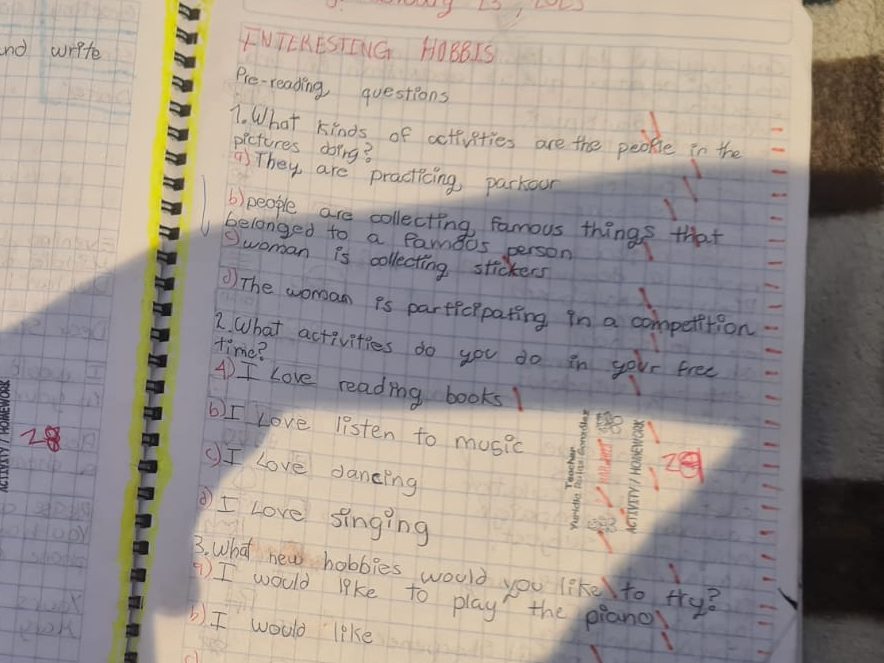 23, 2023
and write
INTERESTING HOBBIS
Pre-reading questions
1. What kinds of activities are the people in the
pictures doing?
a) They are practicing parkour
b) people are collecting famous things that
belonged to a famous person
c) woman is collecting stickers
d) The woman is participating in a competition
2. What activities do you do in your free
time?
A) I Love reading books
b) I Love listen to music
c) I Love dancing
d) I Love singing
3. What new hobbies would you like to try?
a) I would like to play the piano
b) I would like
c)
Teacher
ACTIVITY / HOMEWORK
29
ACTIVITY / HOMEWORK
28